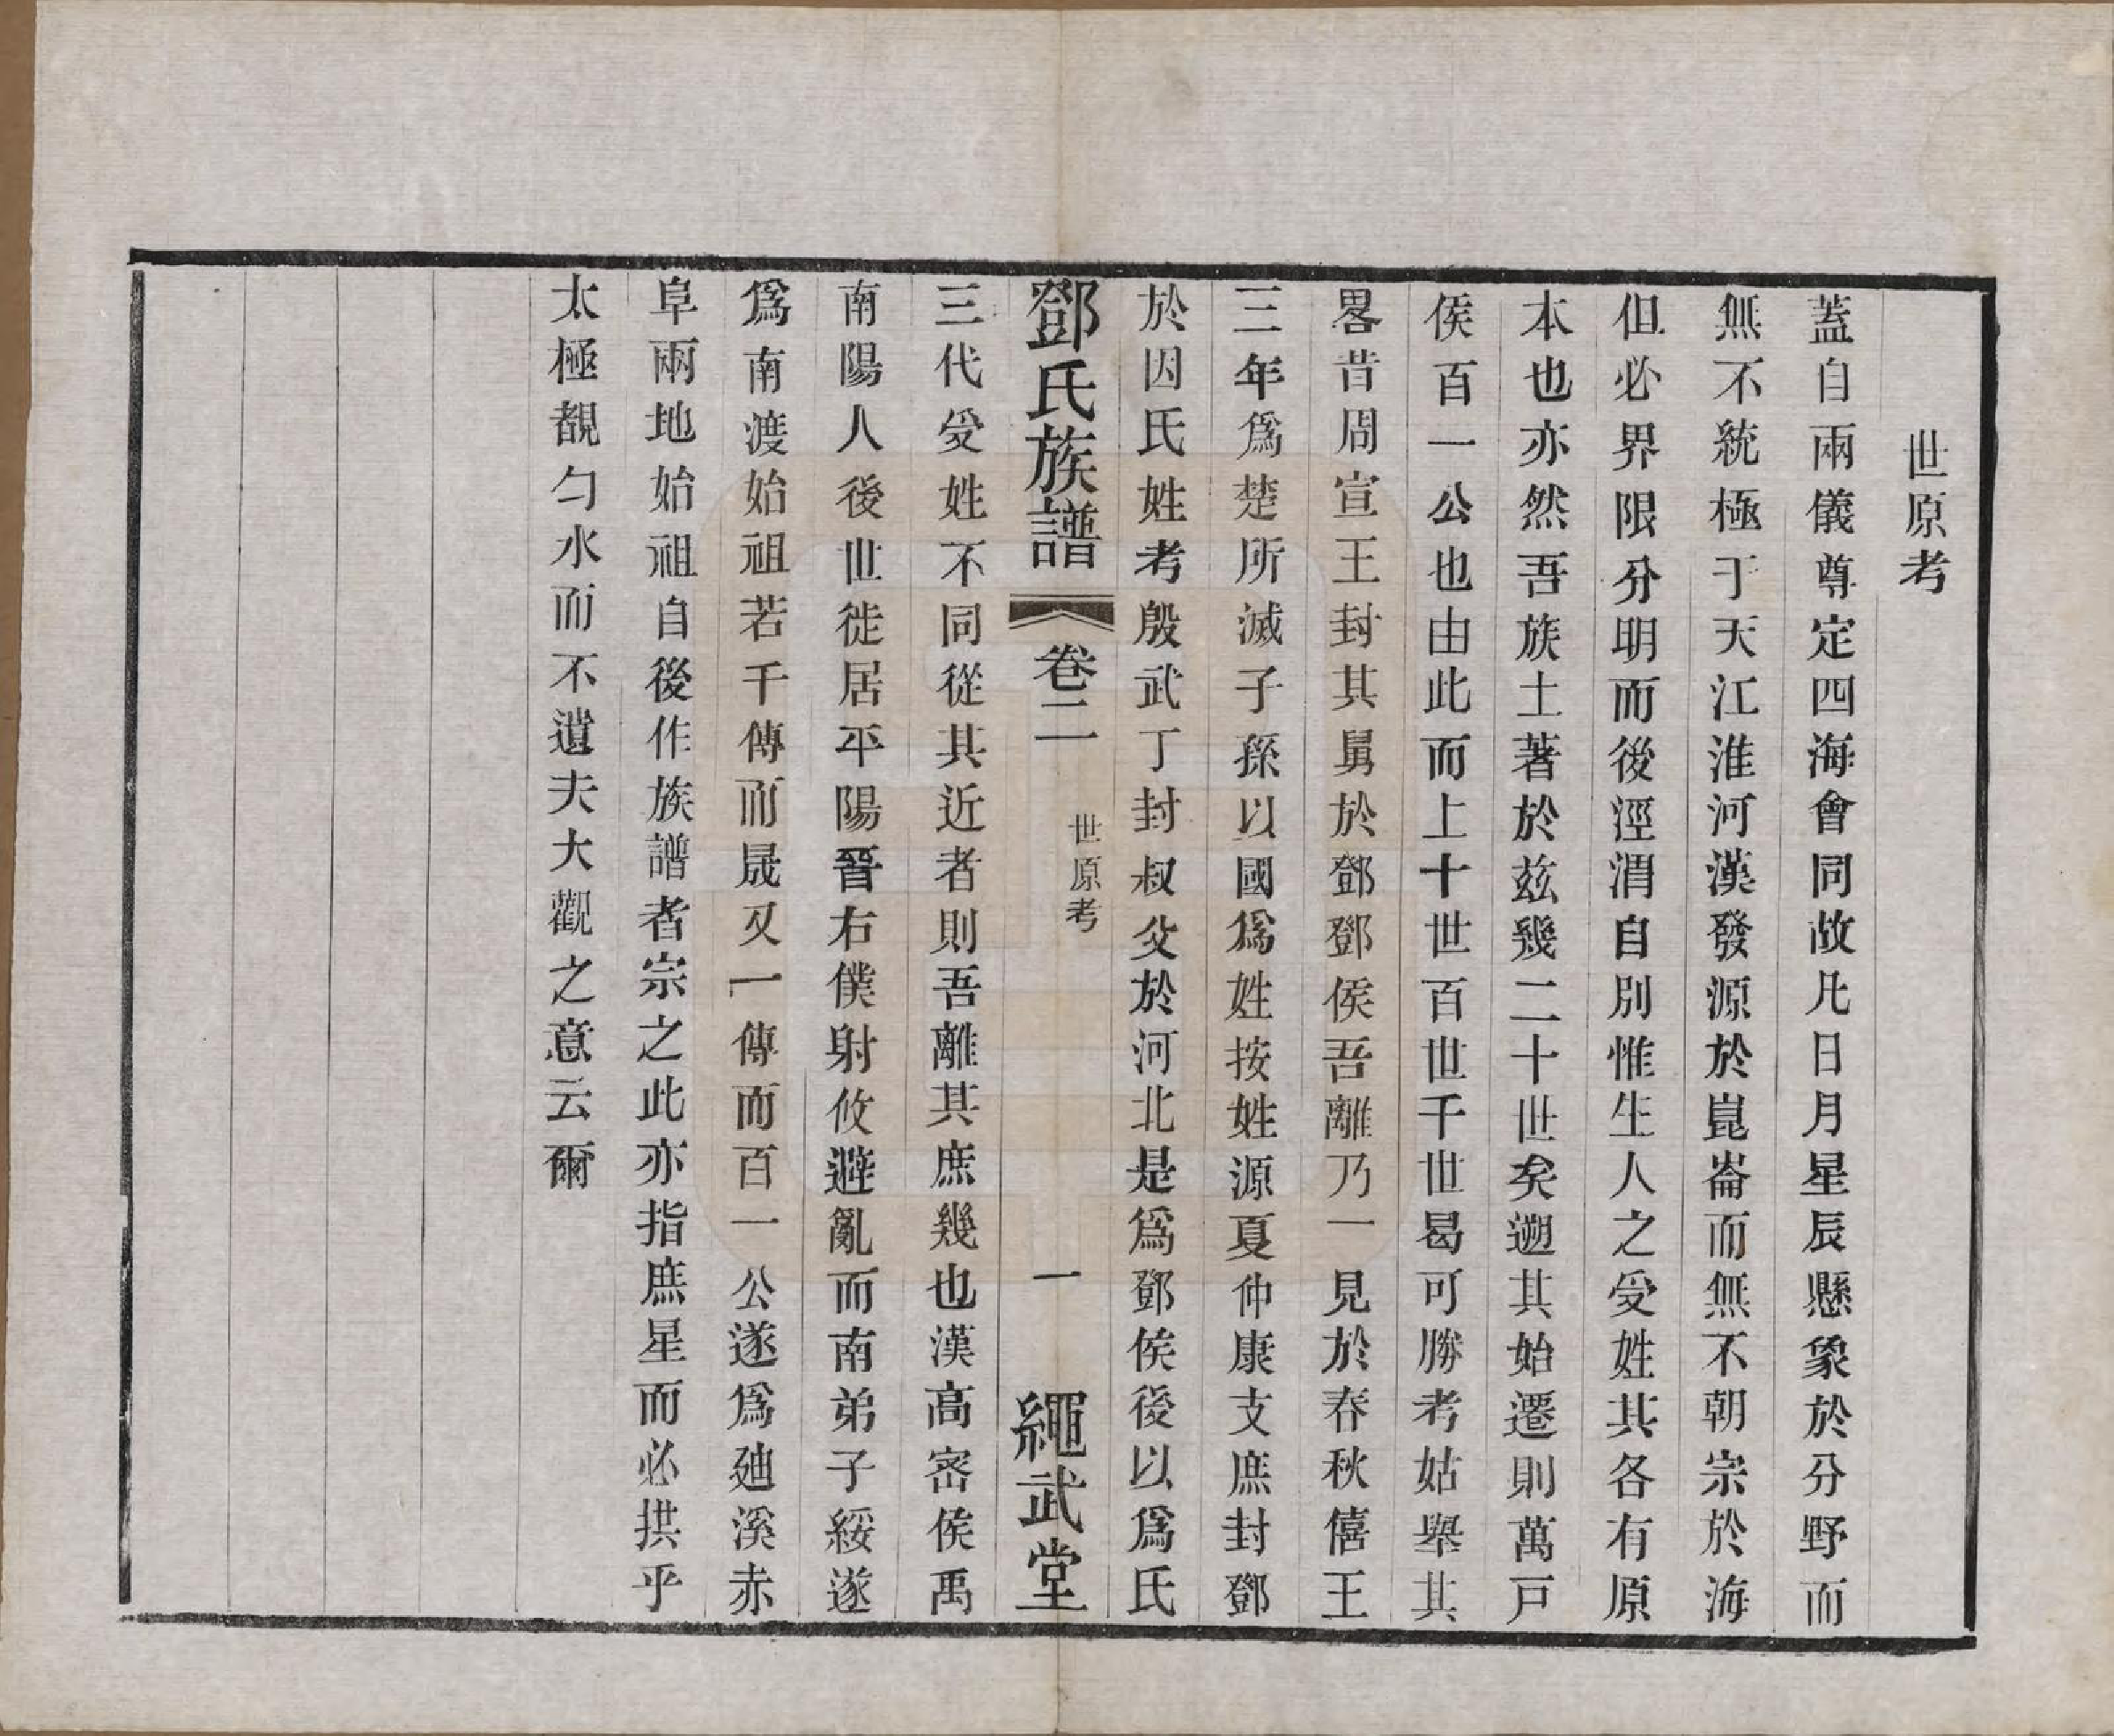 世原考
蓋自兩儀尊定四海會同故凡日月星辰懸象於分野而
無不統極于天江淮河漢發源於崑崙而無不朝宗於海
但必界限分明而後涇渭自別惟生人之受姓其各有原
本也亦然吾族土著於茲幾二十世矣遡其始遷則萬戸
侯百一公也由此而上十世百世千世曷可勝考姑舉其
畧昔周宣王封其舅於鄧鄧侯吾離乃一見於春秋僖王
三年爲楚所滅子孫以國爲姓按姓源夏仲康支庶封鄧
於因氏姓考殷武丁封叔父於河北是爲鄧侯後以爲氏
鄧氏族譜 卷二 世原考 一 繩武堂
三代受姓不同從其近者則吾離其庶幾也漢高密侯禹
南陽人後世徙居平陽晉右僕射攸避亂而南弟子綏遂
爲南渡始祖若千傳而晟又一傳而百一公遂爲廸溪赤
阜兩地始祖自後作族譜者宗之此亦指庶星而必拱乎
太極覩勺水而不遺夫大觀之意云爾